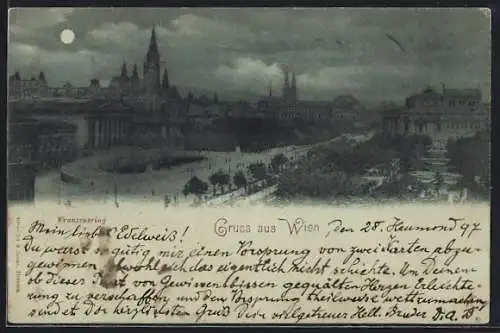 Franzensring
Gruss aus Wien
Den 28. Heumond 97
Mein lieber Edelweiß!
Du warst so gütig mir einen Vorsprung von zwei Karten abzu-
gewinnen obwohl sich das eigentlich nicht schickte. Um Deinem
ob dieser That von Gewissensbissen gequälten Herzen Erleichte-
rung zu verschaffen und den Vorsprung theilweise wettzumachen,
sendet Dir herzlichsten Gruß Dein vielgetreuer Bruder